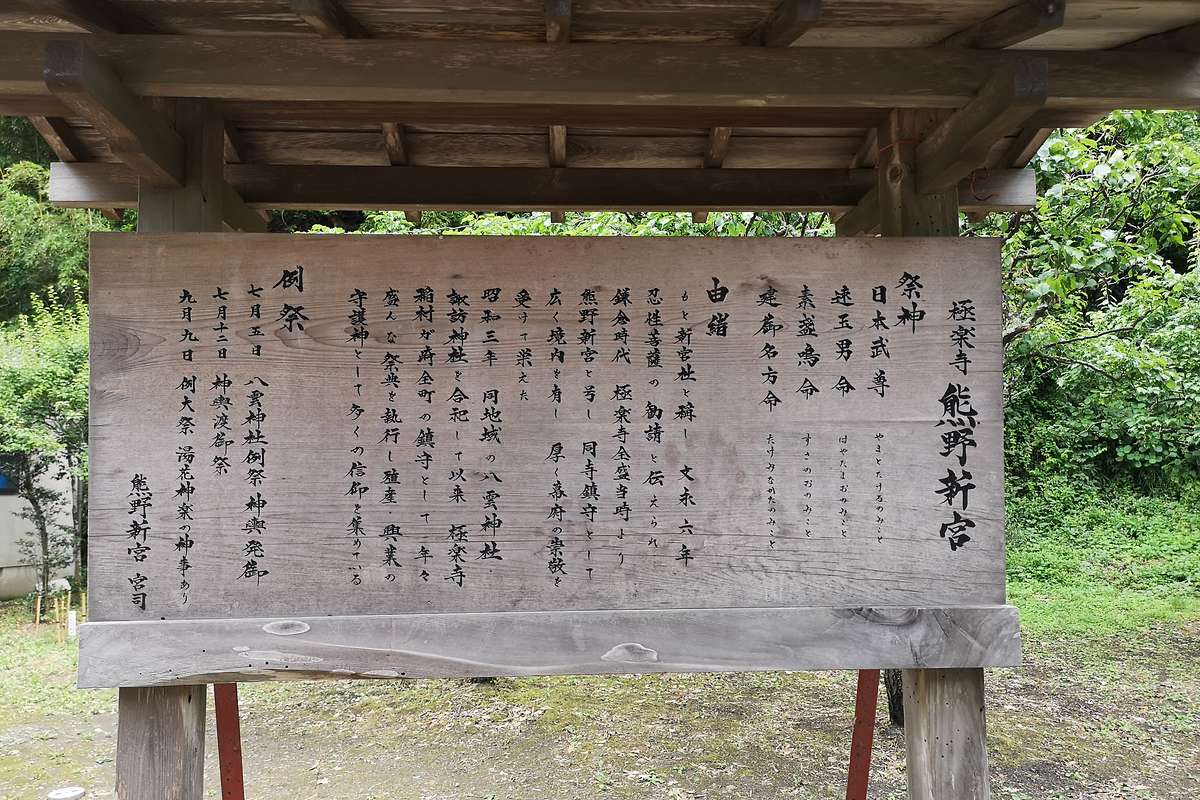 極楽寺 熊野新宮
祭神
日本武尊 やまとたけるのみこと
速玉男命 はやたまおのみこと
素盞鳴命 すさのおのみこと
建御名方命 たけみなかたのみこと
由緒
もと新宮社と稱し 文永六年
忍性菩薩の勧請と伝えられ
鎌倉時代 極楽寺全盛当時より
熊野新宮と号し 同寺鎮守として
広く境内を有し 厚く幕府の崇敬を
受けて栄えた
昭和三年 同地域の八雲神社
諏訪神社を合祀して以来 極楽寺
稲村ガ崎全町の鎮守として 年々
盛んな祭典を執行し殖産・興業の
守護神として多くの信仰を集めている
例祭
七月五日 八雲神社例祭 神輿発御
七月十二日 神輿渡御祭
九月九日 例大祭 湯花神楽の神事あり
熊野新宮 宮司